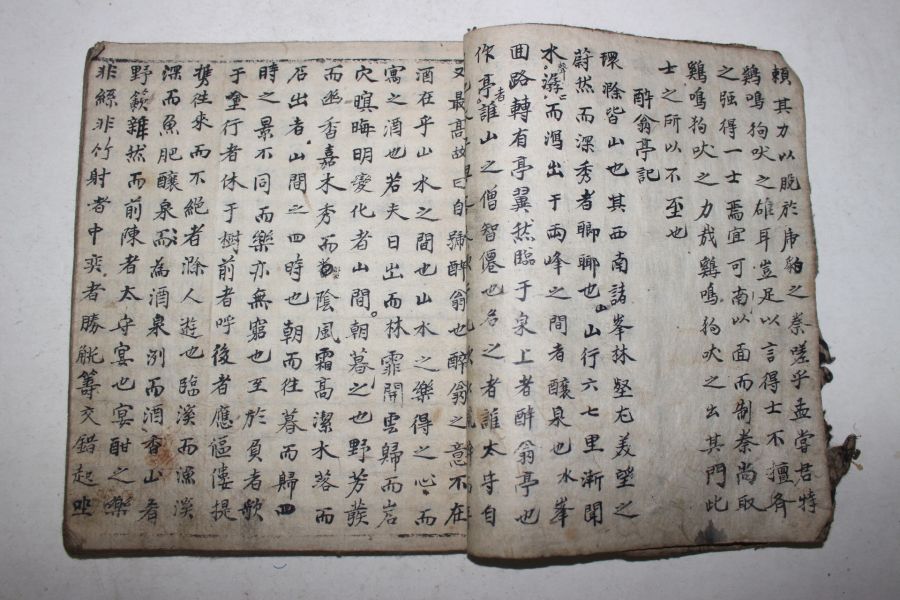 賴其力以脫於虎豹之秦嗟乎孟嘗君特
鷄鳴狗吠之雄耳豈足以言得士不擅齊
之强得一士焉宜可南以面而制秦尚取
鷄鳴狗吠之力哉鷄鳴狗吠之出其門此
士之所以不至也
醉翁亭記
環滁皆山也其西南諸峯林壑尤美望之
蔚然而深秀者瑯琊也山行六七里漸聞
水聲潺潺而瀉出于兩峰之間者釀泉也水峯
回路轉有亭翼然臨于泉上者醉翁亭也
作亭者誰山之僧智僊也名之者誰太守自
又最高故曰自號醉翁也醉翁之意不在
酒在乎山水之間也山水之樂得之心而
寓之酒也若夫日出而林霏開雲歸而岩
穴暝晦明變化者山間朝暮之也野芳發
而幽香嘉木秀而陰風霜高潔水落而
石出者山間之四時也朝而往暮而歸四
時之景不同而樂亦無窮也至於負者歌
于塗行者休于樹前者呼後者應傴僂提
携往來而不絕者滁人遊也臨溪而漁溪
深而魚肥釀泉而爲酒泉洌而酒香山肴
野蔌雜然而前陳者太守宴也宴酣之樂
非絲非竹射者中奕者勝觥籌交錯起坐